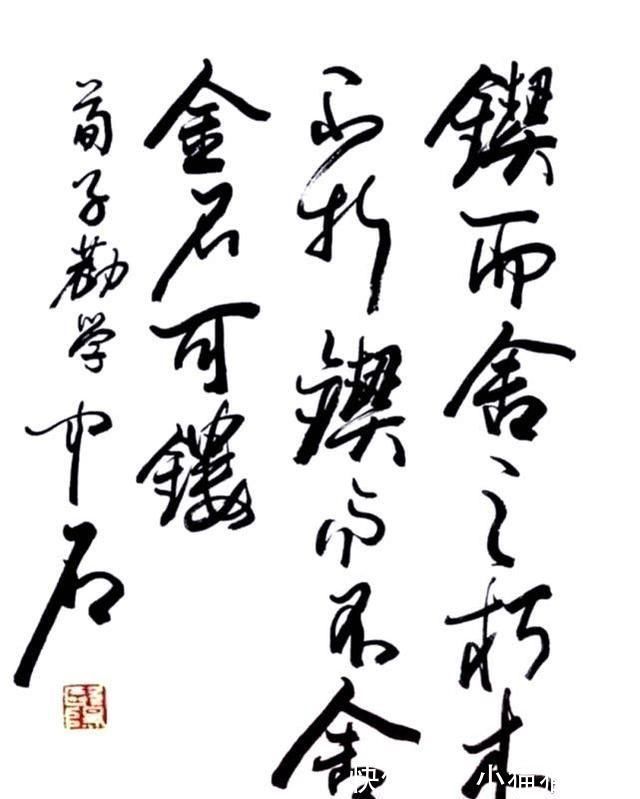 鍥而舍之朽木
不折鍥而不舍
金石可鏤
荀子勸学 中石
快
小猫